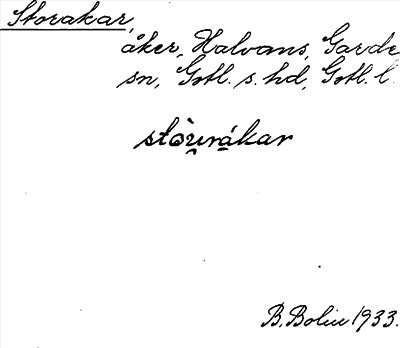 Storakar,
åker, Halvans, Garde
sn, Gotl. s. hd, Gotl. l.
stòu̯rákar
B. Bolin 1933.